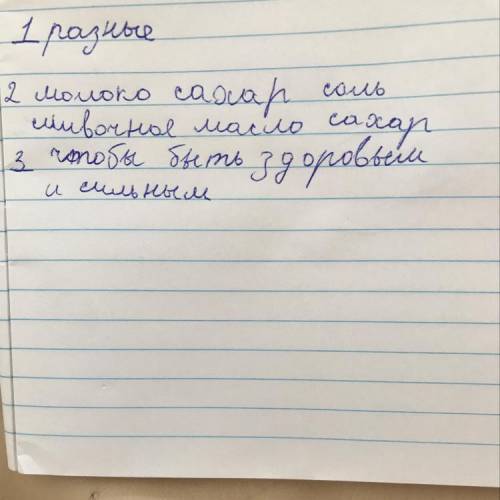 1 разные
2 молоко сахар соль
сливочное масло сахар
3 чтобы быть здоровым
и сильным